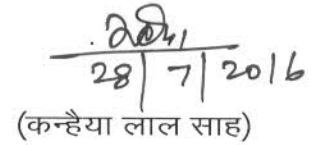 28/7/2016
(कन्हैया लाल साह)